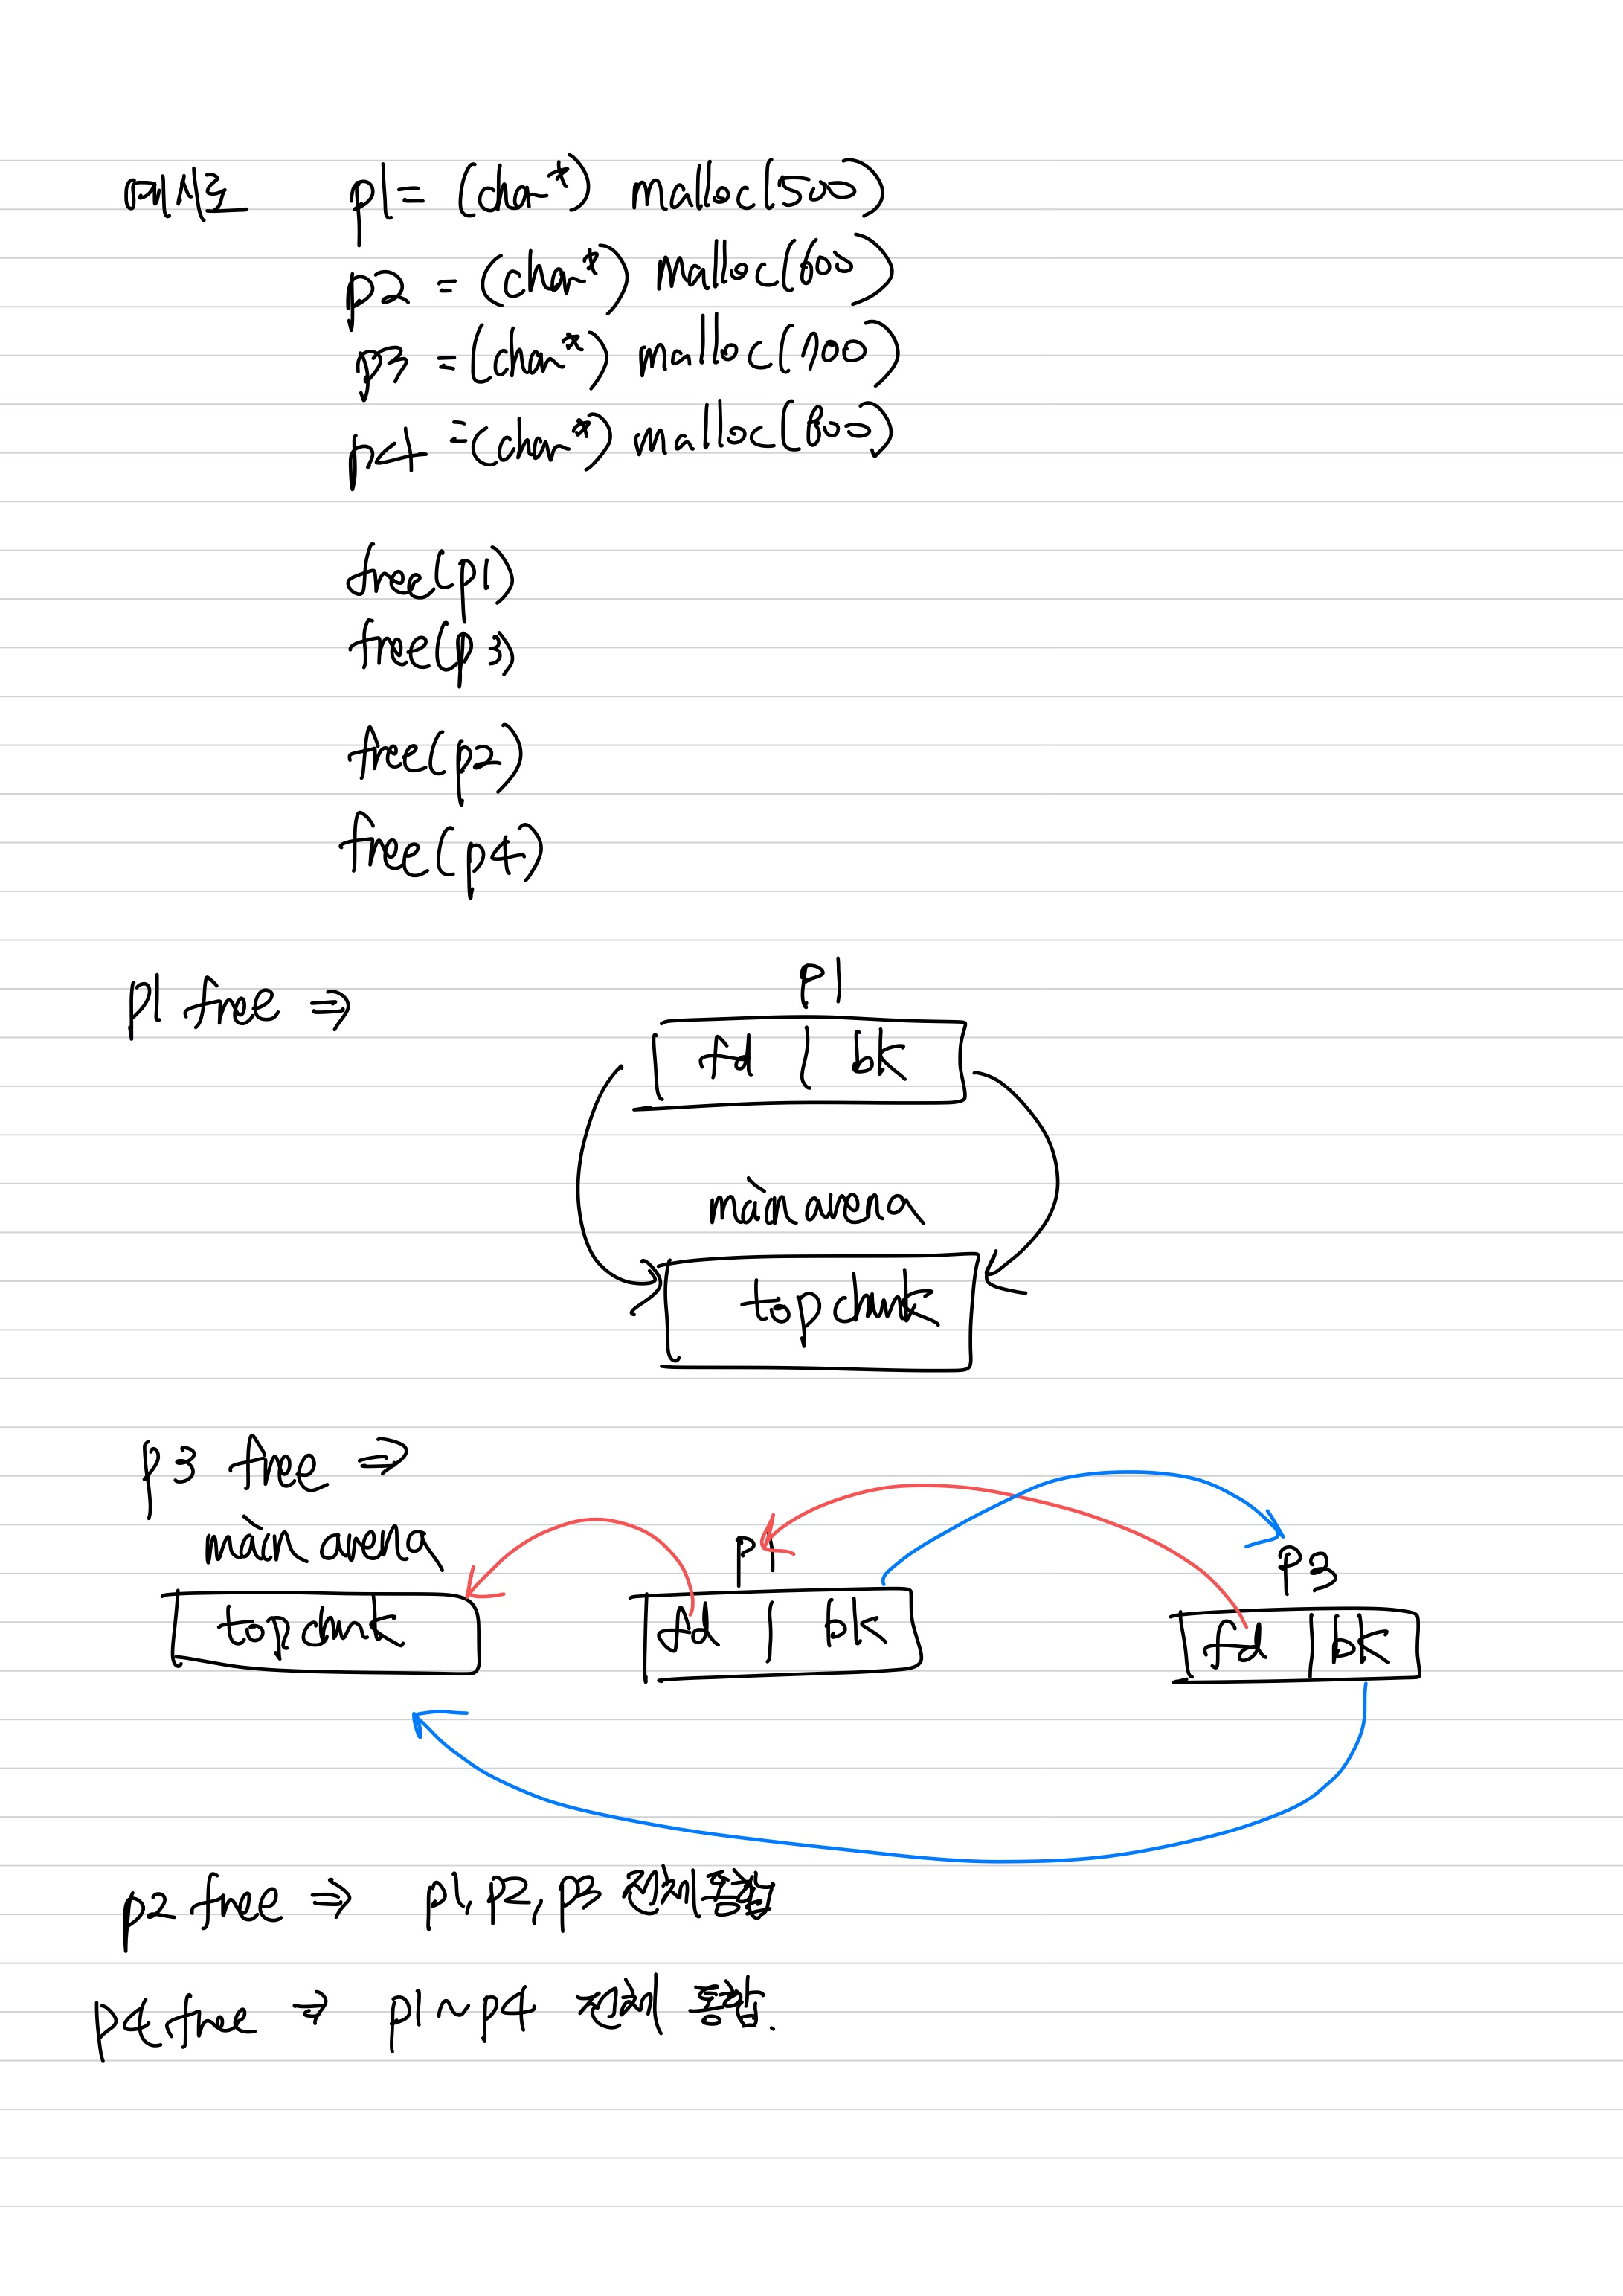 예시로 p1= (char*) malloc(500)
p2 = (char*) malloc(600)
p3 = (char*) malloc(700)
p4 = (char*) malloc(800)
free(p1)
free(p3)
free(p2)
free(p4)
p1 free ⇒
p1
fd | bk
main arena
top chunk
p3 free ⇒
main arena
p1
p3
top chunk
fd | bk
fd | bk
p2 free ⇒ p1, p2, p3 전체 통합
p4 free ⇒ p1~p4 전체 통합.